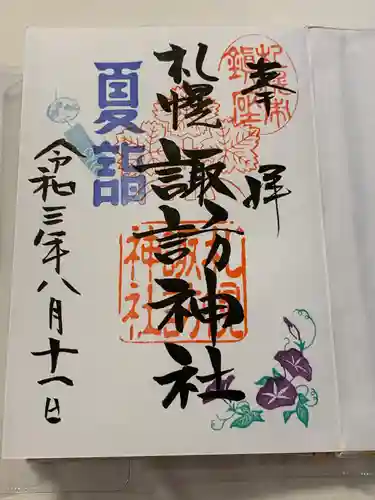 奉拝
札幌諏訪神社
夏詣
令和三年八月十一日
札幌諏訪神社